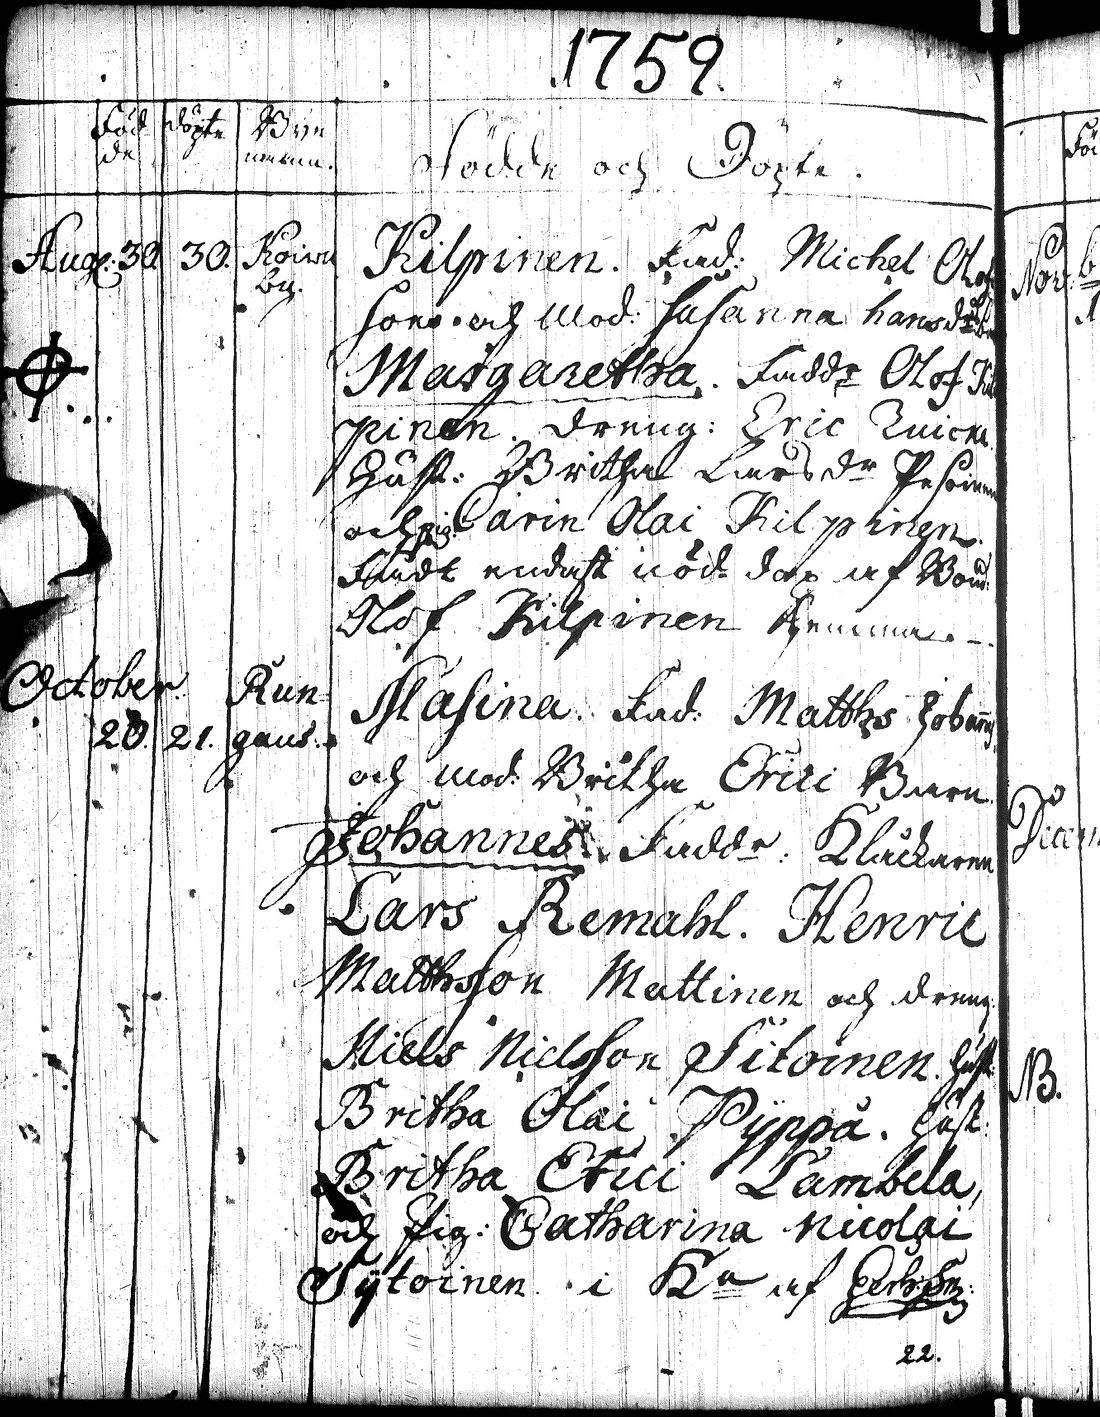 1759.
Föd
de
döpte
Bye
namn.
Födde och Döpte.
Aug: 30. 30. Koiru
by.
Kilpinen. Fad: Michel Olof
son och Mod: Susanna hansdr
Margaretha. Faddr Olof Kil
pinen. dreng: Eric
Hust: Britha Larsdr Pesoinen
och pig: Carin Olai Kilpinen.
Födt endast nöd döp af Bond:
Olof Kilpinen hemma.
October. Run
20. 21. gaus.
Masina. Fad: Matths Johann
och Mod: Britha Erici Barn
Johannes. Faddr: Klåckaren
Lars Remahl. Henric
Matthsson Mattinen och dreng
Niels Nielsson Sitoinen. hust:
Britha Olai Pyppä. hust:
Britha Erici Lambela,
och pig: Catharina Nicolai
Sytoinen. i Kn af
22.
Nov: b
Decem
NB.